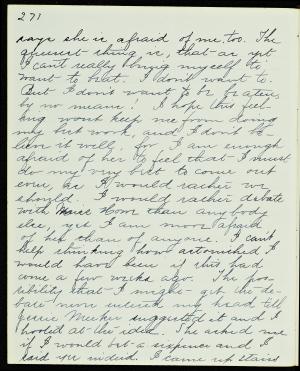 271
says she is afraid of me, too. The
queerest thing is, that as yet
I can't really bring myself to
want to beat. I don't want to.
But I don't want to be beaten,
by no means! I hope this feel-
ing wont keep me from doing
my best work, and I don't be-
lieve it will, for I am enough
afraid of her to feel that I must
do my very best to come out
even, as I would rather we
should. I would rather debate
with Horn than anybody
else, yet I am more afraid
of her than of anyone. I can't
help thinking how astonished I
would have been if this had
come a few weeks ago. The pos-
sibility that I might get the de-
bate never entered my head till
Meeker suggested it and I
hooted at the idea. She asked me
if I would bet a sixpence and I
said yes indeed. I came up stairs